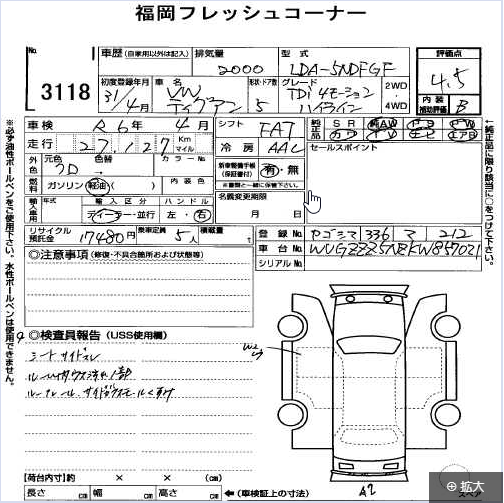 福岡フレッシュコーナー
No.
3118
車歴 (自家用以外は記入)
排気量
2000
型式
LDA-5NDFGF
評価点
4.5
内装
補助評価
B
初度登録年月
31/4月
車名
VW
ティグアン
形状・ドア数
5
グレード
TDI 4モーション
ハイライン
2WD
4WD
車検
R6年 4月
走行
27,127
Km
マイル
シフト
FAT
冷房
AAC
純正品
SR
AW
PS
PW
カワ
TV
ナビ
エアB
セールスポイント
外色
元色
色替
カラーNo.
燃料
ガソリン
軽油
内装色
新車整備手帳
(保証書付)
有・無
※書類と一緒に保管下さい。
名義変更期限
月 日
輸入車用
年式
輸入区分
ハンドル
年
ディーラー・並行
左・右
リサイクル
預託金
17480円
乗車定員
5人
積載量
登録No.
カゴシマ 336 マ 212
車台No.
シリアルNo.
◎注意事項 (修復・不具合箇所および状態等)
◎検査員報告 (USS使用欄)
シートサイドスレ
W2
A2
【荷台内寸】
× ×
長さ cm 幅 cm 高さ cm
(車検証上の寸法)
※必ず油性ボールペンをご使用下さい。水性ボールペンは使用できません。
↑純正品に限り該当に○をつけて下さい。
拡大